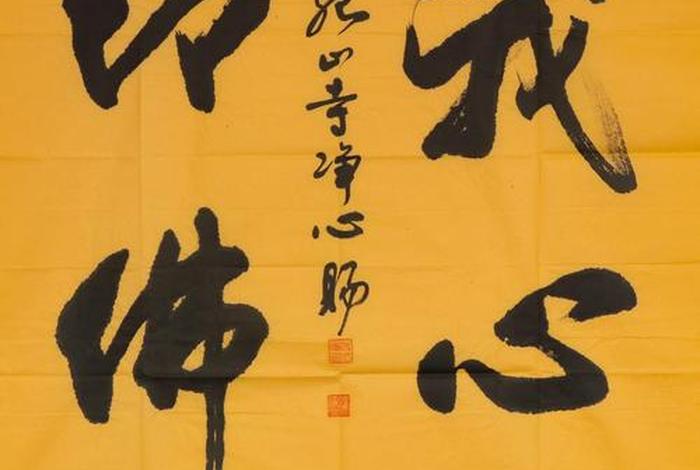 我心
山寺净心賜
即佛